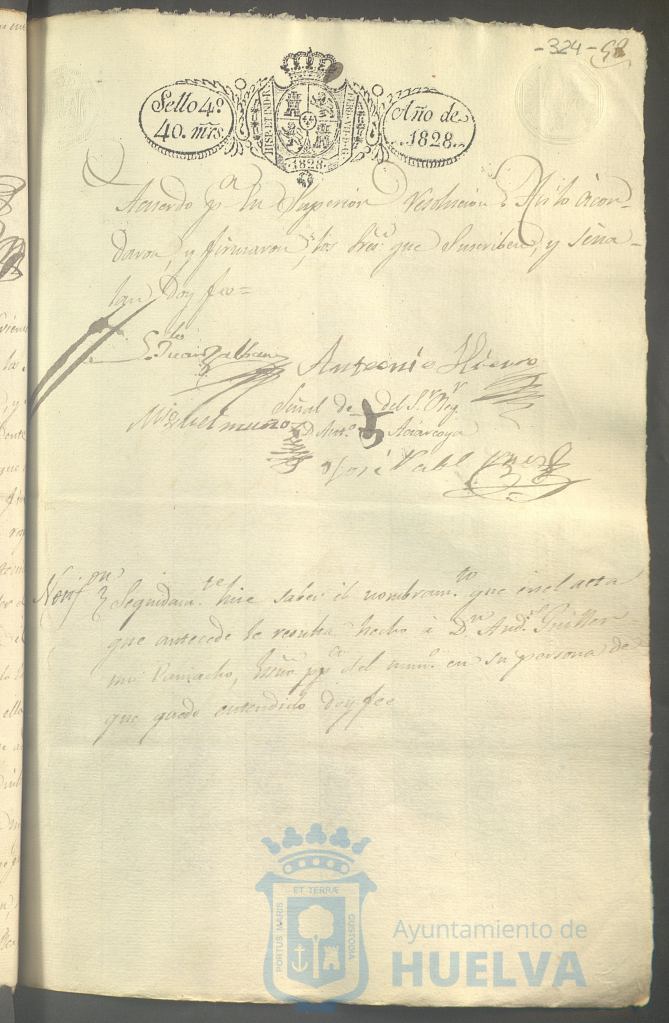 -324-
Sello 4º
40. mrs.
HISP. ET IND. R.
1828
Año de
1828.
Acuerdo pª la Superior resolucion Asi lo Acor-
daron, y firmaron, los Sres que Suscriben, y Seña-
lan Doy fee=
Antonio
Miguel muñoz
Señal de del Sr Regr
D Anto
José
Notifon
Seguidamte hice saber el nombramto que en el acta
que antecede le resulta hecho à Dn Andes Guiller-
mo Camacho, Essno ppco del numo en su persona de
que quedo entendido doy fee
ET TERRÆ
PORTUS MARIS
CUSTODIA
Ayuntamiento de
HUELVA